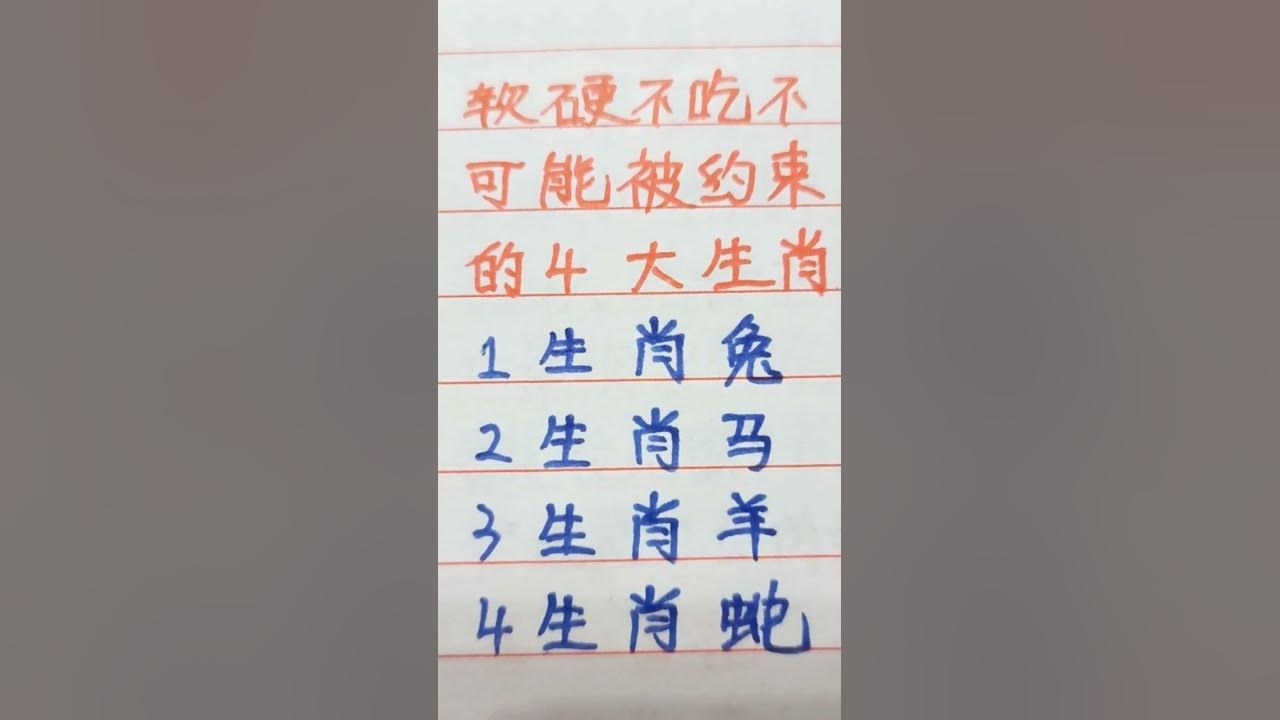 软硬不吃不
可能被约束
的4大生肖
1生肖兔
2生肖马
3生肖羊
4生肖蛇